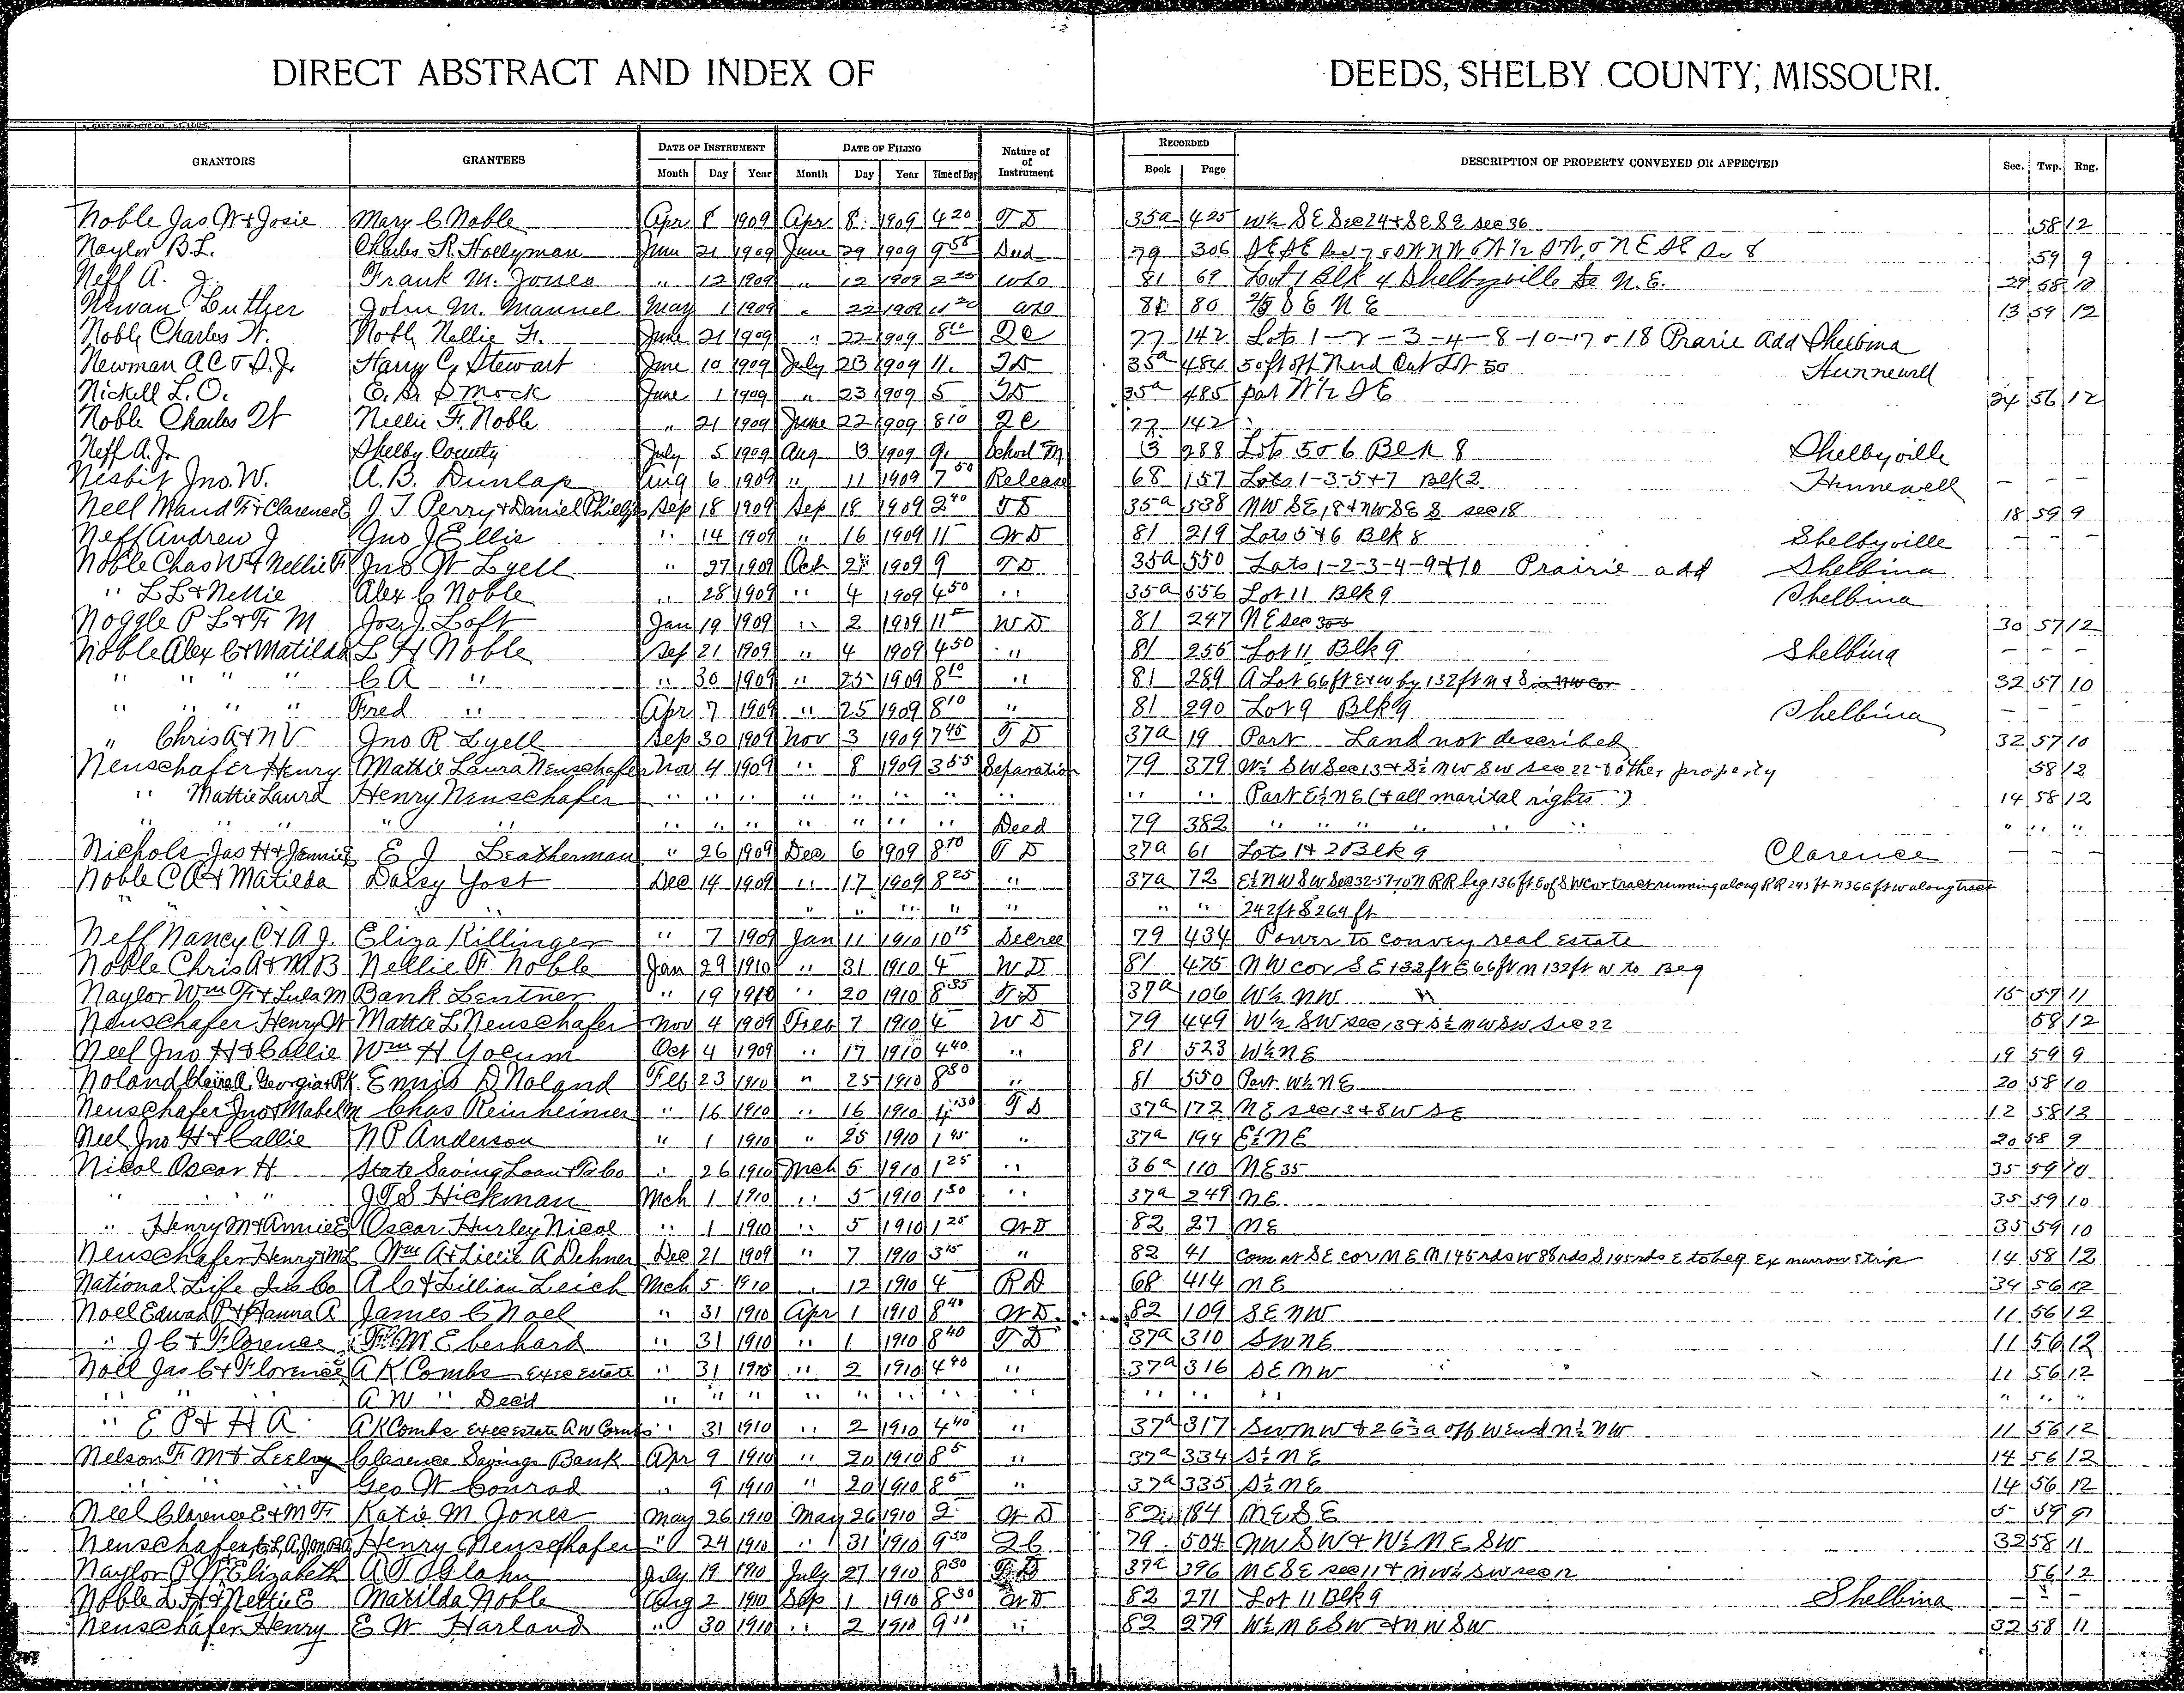 DIRECT ABSTRACT AND INDEX OF DEEDS, SHELBY COUNTY, MISSOURI.
GRANTORS GRANTEES DATE OF INSTRUMENT DATE OF FILING Nature of of Instrument RECORDED DESCRIPTION OF PROPERTY CONVEYED OR AFFECTED Sec. Twp. Rng.
Month Day Year Month Day Year Time of Day Book Page
Noble Jas W & Josie Mary C Noble Apr 8 1909 Apr 8 1909 4 20 T D 35a 425 W½ SE Sec 24 & SE SE sec 36 58 12
Naylor B.L. Charles R. Hollyman June 21 1909 June 29 1909 9 55 Deed 79 306 59 9
Neff A. J. Frank M. Jones " 12 1909 " 12 1909 2 20 WD 81 69 Lot 1 Blk 4 Shelbyville Se N.E. 29 58 10
Newan Luther John M. Manuel May 1 1909 " 22 1909 11 20 WD 81 80 S E N E 13 59 12
Noble Charles W. Noble Nellie F. June 21 1909 " 22 1909 8 10 QC 77 142 Lots 1-2-3-4-8-10-17 & 18 Prarie Add Shelbina
Newman A C & S.J. Harry C. Stewart June 10 1909 July 23 1909 11. T D 35a 484 50 ft off N end Out Lot 50 Hunnewell
Nickell L.O. E. D. Smock June 1 1909 " 23 1909 5 T D 35a 485 part W½ S E 24 56 12
Noble Charles W Nellie F. Noble " 21 1909 June 22 1909 8 10 QC 77 142
Neff A.J. Shelby County July 5 1909 Aug 13 1909 9. School M 13 288 Lots 5 & 6 Blk 8 Shelbyville
Nesbit Jno. W. A.B. Dunlap Aug 6 1909 " 11 1909 7 50 Release 68 157 Lots 1-3-5+7 Blk 2 Hunnewell — —
Neel Maud F & Clarence E J T Perry & Daniel Phillips Sep 18 1909 Sep 18 1909 2 40 T D 35a 538 NW SE, 18 & NW SE S sec 18 18 59 9
Neff Andrew J Jno J Ellis " 14 1909 " 16 1909 11 — W D 81 219 Lots 5 & 6 Blk 8 Shelbyville — — —
Noble Chas W & Nellie F Jno W Lyell " 27 1909 Oct 2 1909 9 T D 35a 550 Lots 1-2-3-4-9 & 10 Prairie add Shelbina
" L L & Nellie Alex C Noble " 28 1909 " 4 1909 4 50 " 35a 556 Lot 11 Blk 9 Shelbina
Noggle P L & F M Jos. J. Loft Jan 19 1909 " 2 1909 11 — W D 81 247 NE sec 30 30 57 12
Noble Alex C & Matilda L H Noble Sep 21 1909 " 4 1909 4 50 " 81 255 Lot 11 Blk 9 Shelbina — — —
" " " " C A " " 30 1909 " 25 1909 8 10 " 81 289 A Lot 66 ft E & W by 132 ft N & S in NW cor 32 57 10
" " " " Fred " Apr 7 1909 " 25 1909 8 10 " 81 290 Lot 9 Blk 9 Shelbina — — —
" Chris A & N V Jno R Lyell Sep 30 1909 Nov 3 1909 7 45 T D 37a 19 Part Land not described 32 57 10
Neuschafer Henry Mattie Laura Neuschafer Nov 4 1909 " 8 1909 3 55 Separation 79 379 W½ SW Sec 13 & S½ NW SW sec 22 & other property 58 12
" Mattie Laura Henry Neuschafer " " " " " " " " " " Part E½ NE (& all marital rights) 14 58 12
" " " " " " " " " " " Deed 79 382 " " " " " " " " "
Nichols Jas H & Jennie E J Leatherman " 26 1909 Dec 6 1909 8 10 T D 37a 61 Lots 1 & 2 Blk 9 Clarence — — —
Noble C A & Matilda Daisy Yost Dec 14 1909 " 17 1909 8 25 " 37a 72 E½ NW SW Sec 32-57-10 N RR beg 136 ft E of SW cor tract running along RR 243 ft N 366 ft W along tract
" " " " " " " " " " 242 ft S 264 ft
Neff Nancy C & A J. Eliza Killinger " 7 1909 Jan 11 1910 10 15 Decree 79 434 Power to convey real estate
Noble Chris A & M B Nellie F Noble Jan 29 1910 " 31 1910 4 — W D 81 475 NW cor S E 132 ft E 66 ft N 132 ft W to Beg
Naylor Wm F & Lula M Bank Lentner " 19 1910 " 20 1910 8 35 T D 37a 106 W½ NW 15 57 11
Neuschafer Henry W Mattie L Neuschafer Nov 4 1909 Feb 7 1910 4 — W D 79 449 W½ SW sec 13 & S½ NW SW sec 22 58 12
Neel Jno H & Callie Wm H Yocum Oct 4 1909 " 17 1910 4 40 " 81 523 W½ NE 19 59 9
Noland Georgia & RK Ennis D Noland Feb 23 1910 " 25 1910 8 30 " 81 550 Part W½ NE 20 58 10
Neuschafer Jno & Mabel M Chas Reinheimer " 16 1910 " 16 1910 1 30 T D 37a 172 NE sec 13 & SW SE 12 58 12
Neel Jno H & Callie N P Anderson " 1 1910 " 25 1910 1 45 " 37a 194 E½ NE 20 58 9
Nicol Oscar H State Saving Loan & Tr Co " 26 1910 Mch 5 1910 1 25 " 36a 110 NE 35 35 59 10
" " " J T S Hickman Mch 1 1910 " 5 1910 1 30 " 37a 249 NE 35 59 10
" Henry M & Annie E Oscar Hurley Nicol " 1 1910 " 5 1910 1 25 W D 82 27 NE 35 59 10
Neuschafer Henry M L Wm A & Lizzie A Dehner Dec 21 1909 " 7 1910 3 15 " 82 41 Com at SE cor NE N 145 rds W 88 rds S 145 rds E to beg Ex narrow strip 14 58 12
National Life Ins Co A C & Lillian Leich Mch 5 1910 " 12 1910 4 — R D 68 414 NE 34 56 12
Noel Edward P & Hanna A James C Noel " 31 1910 Apr 1 1910 8 40 W D 82 109 SE NW 11 56 12
" J C & Florence F M Eberhard " 31 1910 " 1 1910 8 40 T D 37a 310 SW NE 11 56 12
Noel Jas C & Florence A K Combs Exec Estate " 31 1910 " 2 1910 4 40 " 37a 316 SE NW 11 56 12
" " " A W " Dec'd " " " " " " " " " " " " " " "
" E P & H A A K Combs Exec Estate A W Combs " 31 1910 " 2 1910 4 40 " 37a 317 SW NW & 26⅔ a off W end N½ NW 11 56 12
Nelson F M & Clarence Savings Bank Apr 9 1910 " 20 1910 8 5 " 37a 334 S½ NE 14 56 12
" " " Geo W Conrad " 9 1910 " 20 1910 8 5 " 37a 335 S½ NE 14 56 12
Neel Clarence E & M F Katie M Jones May 26 1910 May 26 1910 2 — W D 82 184 NE SE 5 59 9
Neuschafer Henry Neuschafer " 24 1910 " 31 1910 9 30 Q C 79 504 NW SW & W½ NE SW 32 58 11
Naylor P W Elizabeth A T Glahn July 19 1910 July 27 1910 8 30 T D 37a 396 NE SE sec 11 & NW½ SW sec 12 56 12
Noble L H & Nettie E Matilda Noble Aug 2 1910 Sep 1 1910 8 30 W D 82 271 Lot 11 Blk 9 Shelbina — — —
Neuschafer Henry E W Harland " 30 1910 " 2 1910 9 11 " 82 279 W½ NE SW & NW SW 32 58 11